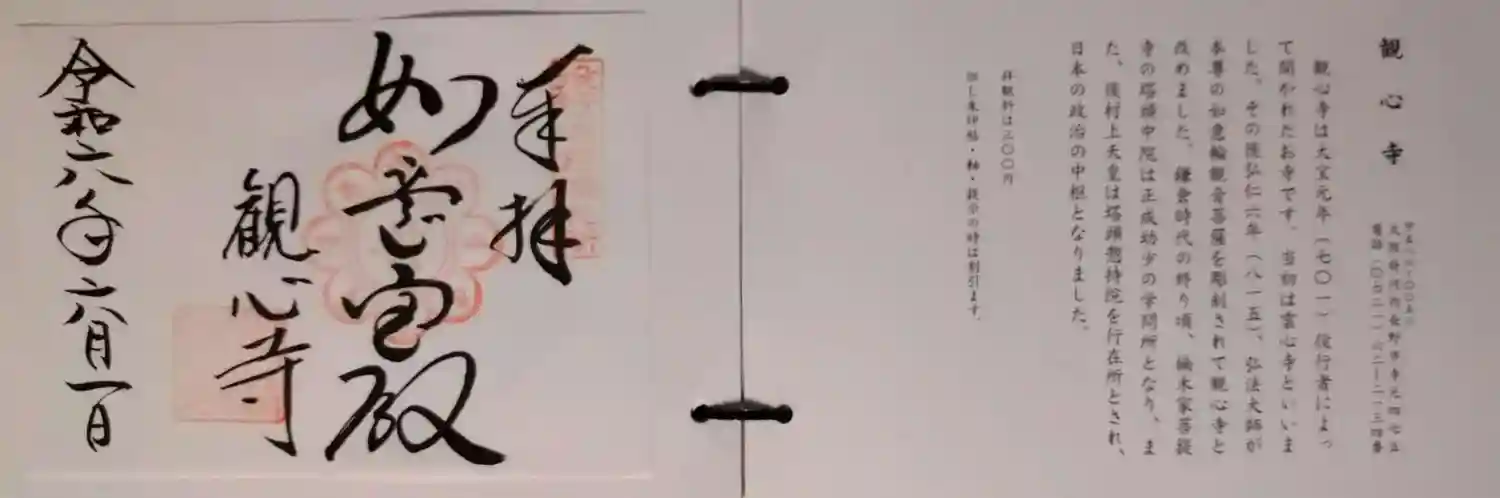 観心寺
大阪府河内長野市寺元四七五
電話(〇七二一)六二-二一三四番
観心寺は大宝元年(七〇一)役行者によっ
て開かれたお寺です。当初は雲心寺といいま
した。その後弘仁六年(八一五)、弘法大師が
本尊の如意輪観音菩薩を彫刻されて観心寺と
改めました。鎌倉時代の終り頃、楠木家菩提
寺の塔頭中院は正成幼少の学問所となり、ま
た、後村上天皇は塔頭惣持院を行在所とされ、
日本の政治の中枢となりました。
拝観料は三〇〇円
但し朱印帖・軸・提示の時は割引ます。
奉拝
如意宝殿
観心寺
令和六年六月一日